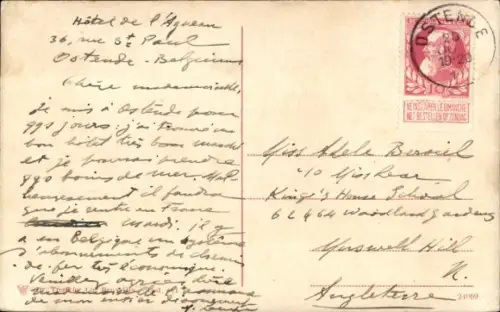 Hôtel de l'Agneau
36, rue St Paul
Ostende - Belgique
Chère mademoiselle,
je suis à Ostende pour
qqs jours, j'ai trouvé un
bon hôtel très bon marché
et je pourrai prendre
qqs bains de mer. Mal
heureusement il faudra
que je rentre en France
mardi. il y
a en Belgique un système
d'abonnements de chemin
de fer très économique.
Veuillez agréer
de mon
OSTENDE
10-20
NE PAS LIVRER LE DIMANCHE
NIET BESTELLEN OP ZONDAG
Miss Adela
King's House School
62 & 64 Woodland gardens
Muswell Hill
N.
Angleterre